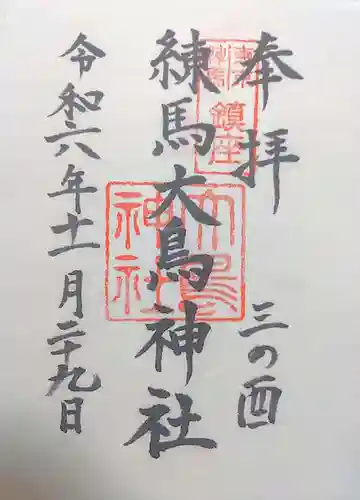 奉拝
三の酉
練馬大鳥神社
令和六年十一月二十九日
鎮座
大鳥神社